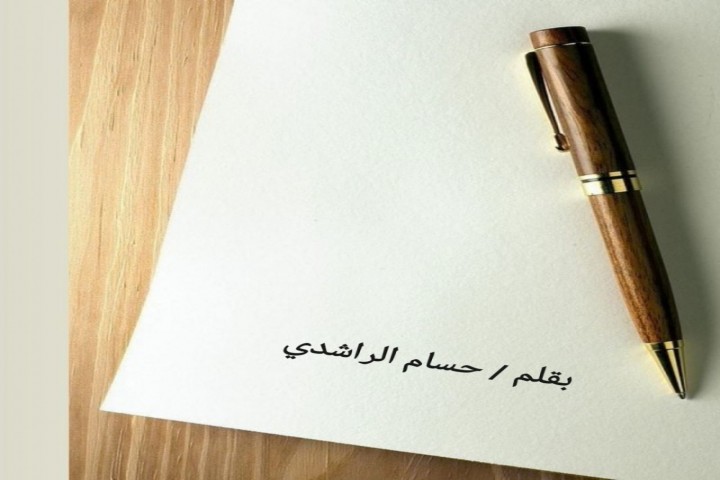 بقلم / حسام الراشدي